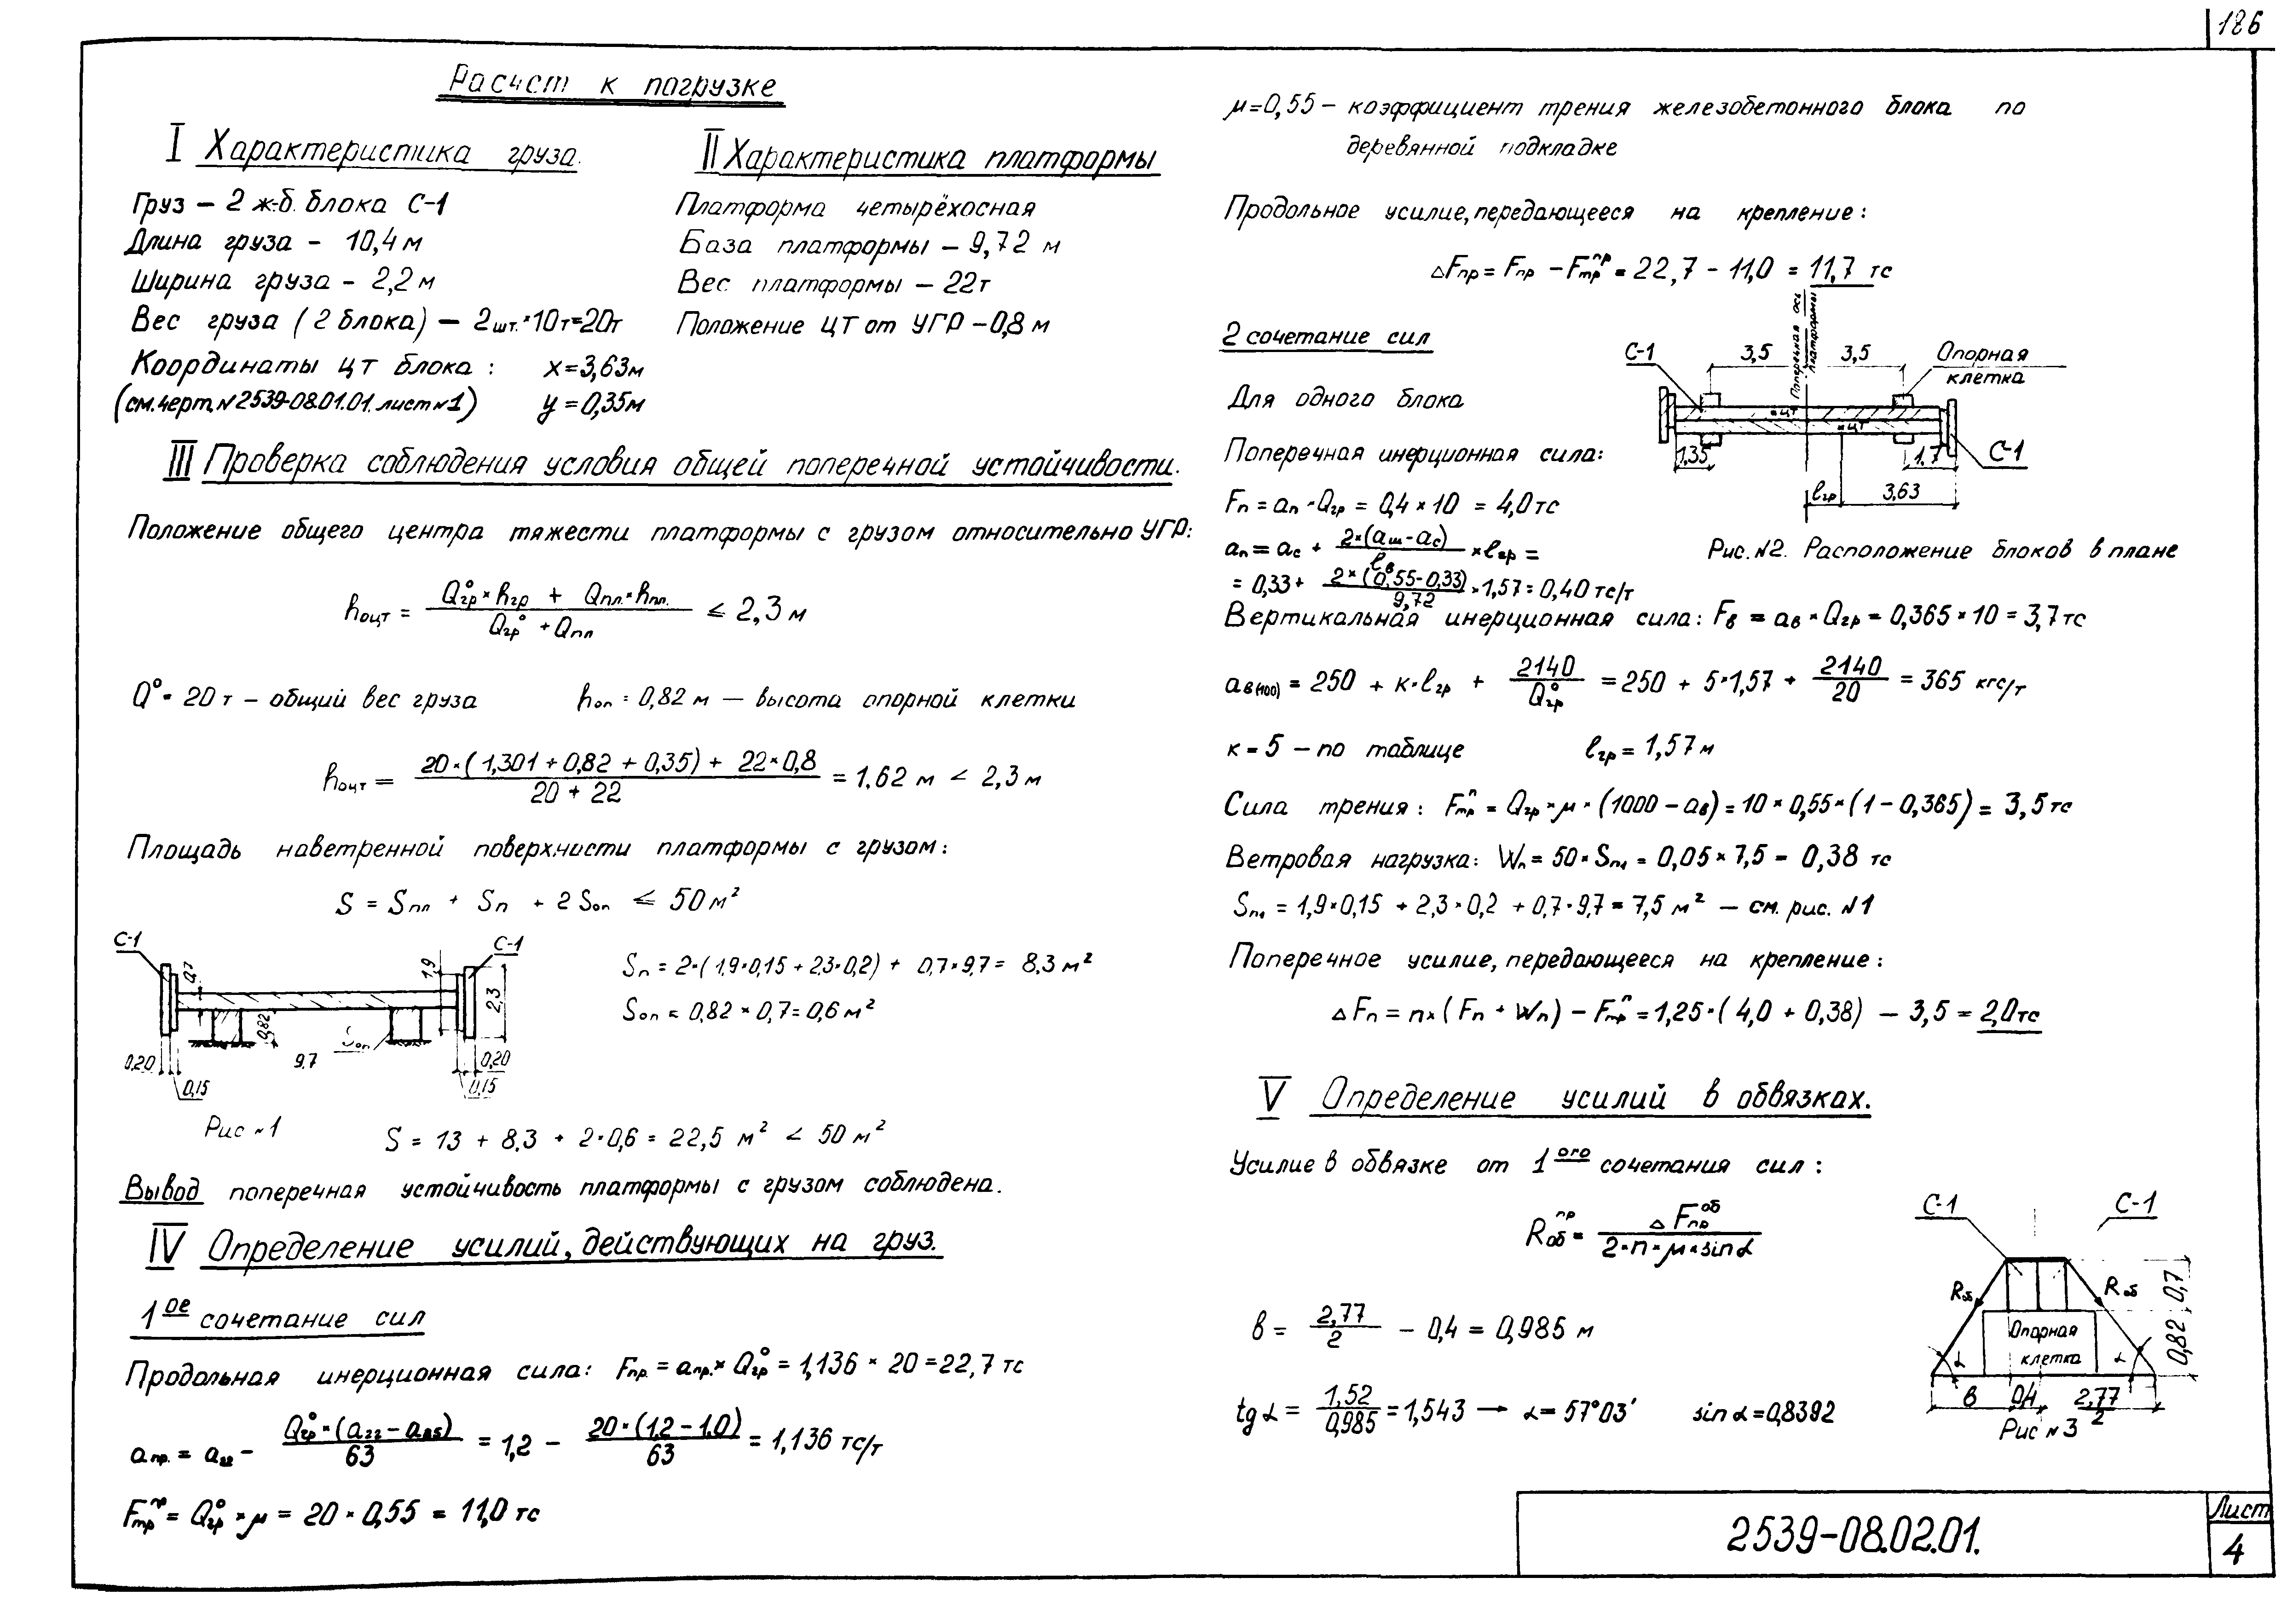 186
Расчет к погрузке
I Характеристика груза.
Груз – 2 ж-б. блока С-1
Длина груза - 10,4 м
Ширина груза - 2,2 м
Вес груза (2 блока) – 2шт.×10т=20т
Координаты ЦТ блока : x=3,63м
(см.черт.№2539-08.01.01.лист №1) y=0,35м
II Характеристика платформы
Платформа четырёхосная
База платформы – 9,72 м
Вес платформы – 22т
Положение ЦТ от УГР – 0,8 м
III Проверка соблюдения условия общей поперечной устойчивости.
Положение общего центра тяжести платформы с грузом относительно УГР:
hоцт = (Q°гр × hгр + Qпл. × hпл.) / (Q°гр + Qпл) ≤ 2,3 м
Q° = 20 т – общий вес груза hоп = 0,82 м — высота опорной клетки
hоцт = (20×(1,301 + 0,82 + 0,35) + 22×0,8) / (20 + 22) = 1,62 м < 2,3 м
Площадь наветренной поверхности платформы с грузом:
S = Sпл + Sп + 2 Sоп ≤ 50 м²
С-1 С-1
0,7 1,9 2,3
0,82 Sоп
0,20 0,15 9,7 0,20 0,15
Рис №1
Sп = 2×(1,9×0,15 + 2,3×0,2) + 0,7×9,7 = 8,3 м²
Sоп = 0,82 × 0,7 = 0,6 м²
S = 13 + 8,3 + 2×0,6 = 22,5 м² < 50 м²
Вывод поперечная устойчивость платформы с грузом соблюдена.
IV Определение усилий, действующих на груз.
1ое сочетание сил
Продольная инерционная сила: Fпр. = aпр.× Q°гр = 1,136 × 20 = 22,7 тс
aпр. = a22 - Q°гр×(a22 – a85) / 63 = 1,2 – 20×(1,2 – 1,0) / 63 = 1,136 тс/т
Fтрпр = Q°гр × μ = 20 × 0,55 = 11,0 тс
μ=0,55 – коэффициент трения железобетонного блока по
деревянной подкладке
Продольное усилие, передающееся на крепление:
△Fпр = Fпр – Fтрпр = 22,7 - 11,0 = 11,7 тс
2 сочетание сил
Для одного блока
Поперечная инерционная сила:
Fп = aп × Qгр = 0,4 × 10 = 4,0 тс
aп = aс + 2×(aш-aс) / lв × lгр =
= 0,33 + 2×(0,55-0,33) / 9,72 × 1,57 = 0,40 тс/т
Поперечная ось платформы
С-1 3,5 3,5 Опорная клетка
ЦТ
ЦТ
1,35 1,7 С-1
lгр 3,63
Рис.№2. Расположение блоков в плане
Вертикальная инерционная сила: Fв = aв × Qгр = 0,365 × 10 = 3,7 тс
aв(100) = 250 + к×lгр + 2140 / Q°гр = 250 + 5×1,57 + 2140 / 20 = 365 кгс/т
к = 5 – по таблице lгр = 1,57 м
Сила трения: Fтрп = Qгр × μ × (1000 – aв) = 10 × 0,55 × (1 - 0,365) = 3,5 тс
Ветровая нагрузка: Wп = 50×Sп1 = 0,05 × 7,5 = 0,38 тс
Sп1 = 1,9×0,15 + 2,3×0,2 + 0,7×9,7 = 7,5 м² — см. рис. №1
Поперечное усилие, передающееся на крепление:
△Fп = n×(Fп + Wп) – Fтрп = 1,25×(4,0 + 0,38) – 3,5 = 2,0тс
V Определение усилий в обвязках.
Усилие в обвязке от 1ого сочетания сил:
Rобпр = △Fпроб / 2×n×μ×sin α
в = 2,77 / 2 – 0,4 = 0,985 м
tg α = 1,52 / 0,985 = 1,543 → α = 57°03' sin α = 0,8392
С-1 С-1
Rоб Rоб
Опорная
клетка
α α
0,7
0,82
в 0,4 2,77 / 2
Рис №3
2539-08.02.01.
Лист
4